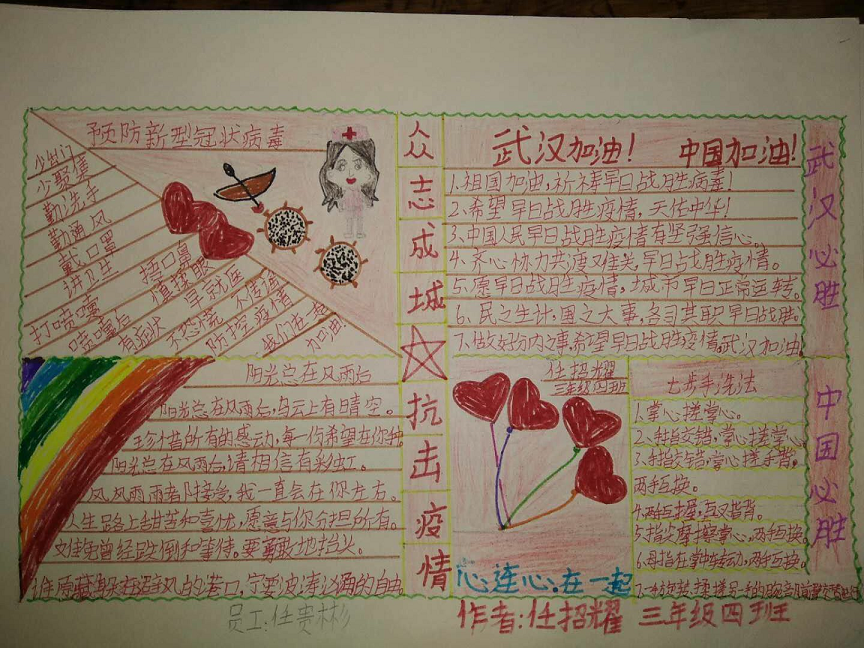 预防新型冠状病毒
少出门
少聚集
勤洗手
勤通风
戴口罩
讲卫生
打喷嚏
捂口鼻
喷嚏后
慎揉眼
有症状
早就医
不恐慌
不传谣
防控疫情
我们在一起
加油!
阳光总在风雨后
阳光总在风雨后,乌云上有晴空。
珍惜所有的感动,每一份希望在你
阳光总在风雨后,请相信有彩虹。
风风雨雨都接受,我一直会在你左右。
人生路上甜苦和喜忧,愿意与你分担所有。
难免曾经跌倒和等待。要勇敢地抬头。
谁愿藏
避风的港口,宁要波涛汹涌的自由
员工:任贵彬
众志成城
抗击疫情
武汉加油! 中国加油!
1.祖国加油,祈祷早日战胜病毒!
2、希望早日战胜疫情,天佑中华!
3.中国人民早日战胜疫情有坚强信心。
4.齐心协力共度难关,早日战胜疫情。
5、愿早日战胜疫情,城市早日正常运转。
6、民之生计,国之大事,各司其职早日战胜
7、做好分内之事,希望早日战胜疫情,武汉加油
任招耀
三年级四班
心连心.在一起
七步手洗法
1.掌心搓掌心。
2、手指交错,掌心搓掌心
3、手指交错,掌心搓手背。
两手互换。
4.两手互握,互叉指背。
5、指交摩擦掌心,两手互换。
6.母指在掌中转动,两手互换。
作者:任招耀 三年级四班
武汉必胜
中国必胜